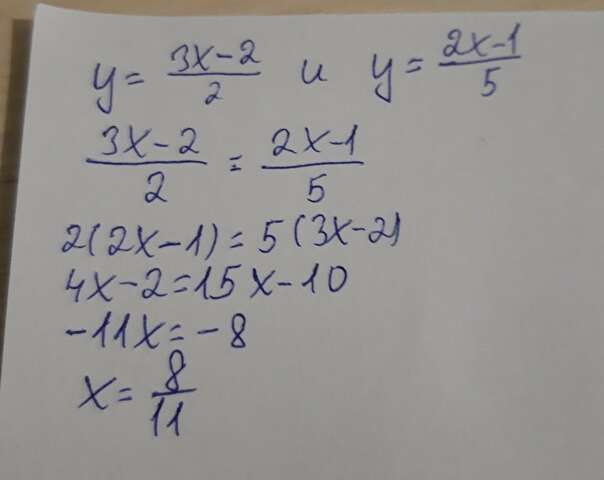 y = (3x-2)/2 и y = (2x-1)/5
(3x-2)/2 = (2x-1)/5
2(2x-1) = 5(3x-2)
4x-2=15x-10
-11x = -8
x = 8/11